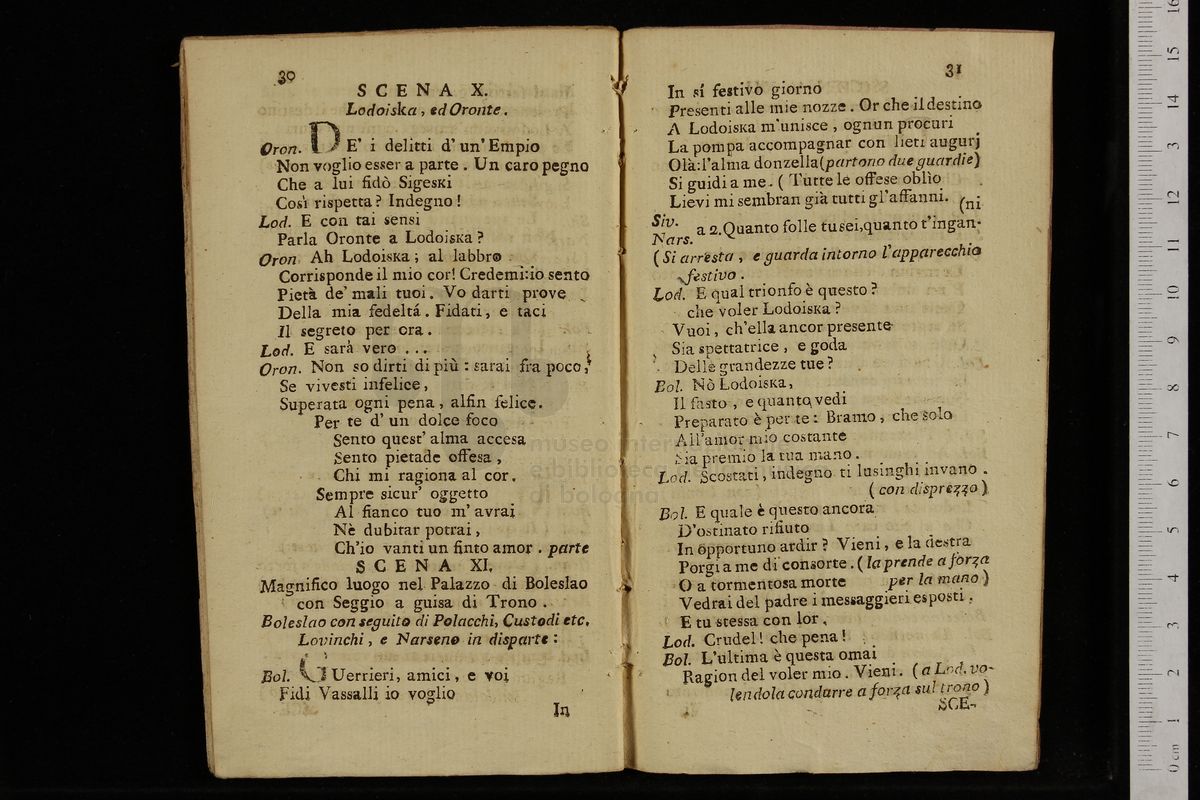 30
SCENA X.
Lodoiska, ed Oronte.
Oron. DE' i delitti d'un' Empio
Non voglio esser a parte. Un caro pegno
Che a lui fidò Sigeski
Così rispetta? Indegno!
Lod. E con tai sensi
Parla Oronte a Lodoiska?
Oron. Ah Lodoiska; al labbro
Corrisponde il mio cor! Credemi: io sento
Pietà de' mali tuoi. Vo darti prove
Della mia fedeltá. Fidati, e taci
Il segreto per ora.
Lod. E sarà vero ...
Oron. Non so dirti di più: sarai fra poco,
Se vivesti infelice,
Superata ogni pena, alfin felice.
Per te d' un dolce foco
Sento quest' alma accesa
Sento pietade offesa,
Chi mi ragiona al cor.
Sempre sicur' oggetto
Al fianco tuo m' avrai
Nè dubitar potrai,
Ch'io vanti un finto amor. parte
SCENA XI.
Magnifico luogo nel Palazzo di Boleslao
con Seggio a guisa di Trono.
Boleslao con seguito di Polacchi, Custodi etc.
Lovinchi, e Narseno in disparte:
Bol. GUerrieri, amici, e voi
Fidi Vassalli io voglio
In
31
In sí festivo giorno
Presenti alle mie nozze. Or che il destino
A Lodoiska m'unisce, ognun procuri
La pompa accompagnar con lieti augurj
Olà: l'alma donzella (partono due guardie)
Si guidi a me. ( Tutte le offese oblìo
Lievi mi sembran già tutti gl'affanni. (ni
Siv. Nars. a 2. Quanto folle tu sei, quanto t'ingan-
(Si arresta, e guarda intorno l'apparecchio
festivo.
Lod. E qual trionfo è questo?
che voler Lodoiska?
Vuoi, ch'ella ancor presente
Sia spettatrice, e goda
Delle grandezze tue?
Bol. Nò Lodoiska,
Il fasto, e quanto vedi
Preparato è per te: Bramo, che solo
All'amor mio costante
Sia premio la tua mano.
Lod. Scostati, indegno. ti lusinghi invano.
(con disprezzo)
Bol. E quale è questo ancora
D'ostinato rifiuto
In opportuno ardir? Vieni, e la destra
Porgi a me di consorte. (la prende a forza
O a tormentosa morte per la mano)
Vedrai del padre i messaggieri esposti,
E tu stessa con lor.
Lod. Crudel! che pena!
Bol. L'ultima è questa omai
Ragion del voler mio. Vieni. (a Lod. vo-
lendola condurre a forza sul trono)
SCE-
museo internazionale
e biblioteca della musica
di bologna
0 cm 1 2 3 4 5 6 7 8 9 10 11 12 13 14 15 16